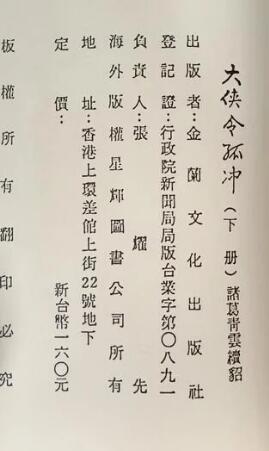 大侠令狐冲（下册）諸葛青雲續貂
出版者：金蘭文化出版社
登記證：行政院新聞局局版台業字第〇八九一
負責人：張耀先
海外版權星輝圖書公司所有
地址：香港上環差館上街22號地下
定價：新台幣一六〇元
板權所有翻印必究